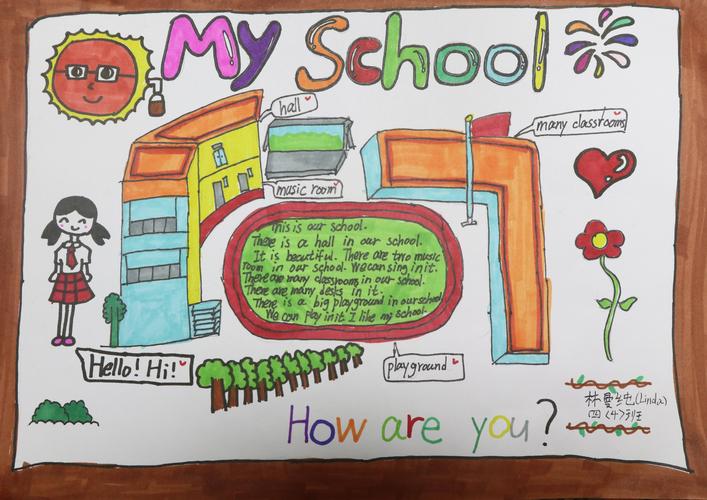 My School
hall
many classrooms
music room
This is our school.
There is a hall in our school.
It is beautiful. There are two music
room in our school. We can sing in it.
There are many classrooms in our school.
There are many desks in it.
There is a big playground in our school
We can play in it. I like my school.
Hello! Hi!
playground
林曼纯(Linda)
四(4)班
How are you?